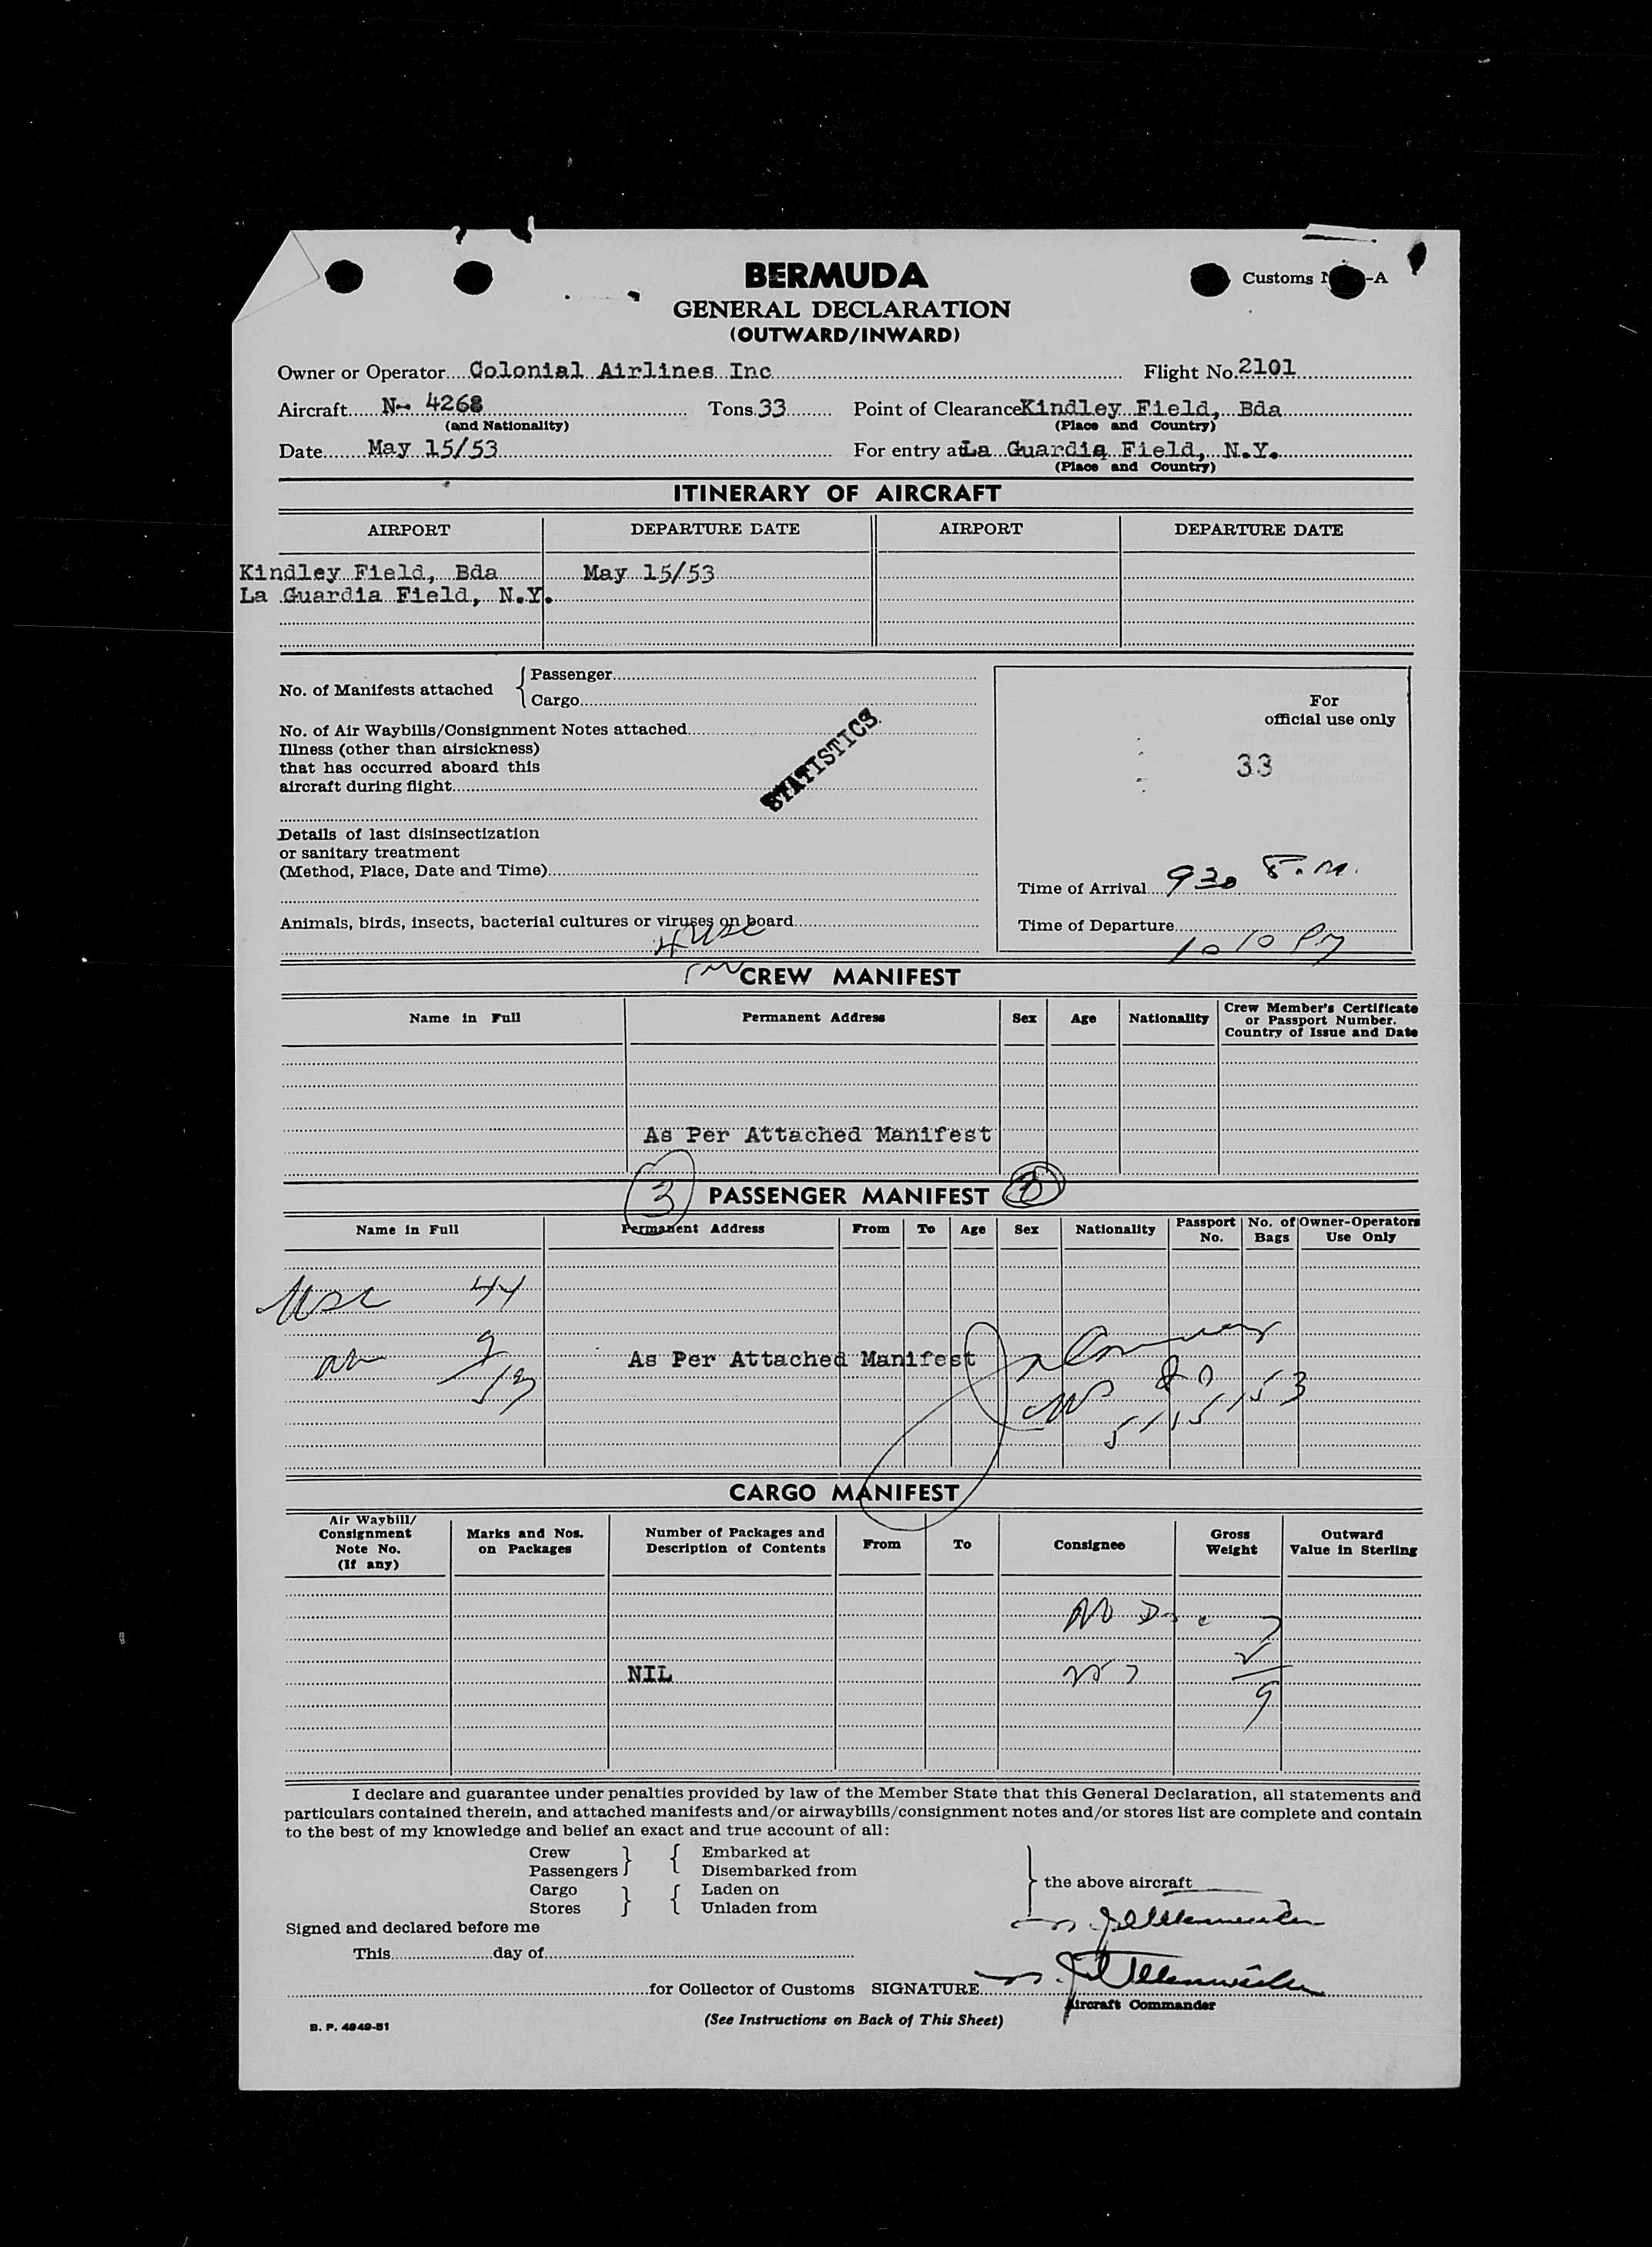 BERMUDA
Customs -A
GENERAL DECLARATION
(OUTWARD/INWARD)
Owner or Operator Colonial Airlines Inc Flight No. 2101
Aircraft N- 4268 Tons 33 Point of Clearance Kindley Field, Bda
(and Nationality) (Place and Country)
Date May 15/53 For entry at La Guardia Field, N.Y.
(Place and Country)
ITINERARY OF AIRCRAFT
AIRPORT DEPARTURE DATE AIRPORT DEPARTURE DATE
Kindley Field, Bda May 15/53
La Guardia Field, N.Y.
No. of Manifests attached { Passenger
Cargo
No. of Air Waybills/Consignment Notes attached
Illness (other than airsickness)
that has occurred aboard this
aircraft during flight
STATISTICS
Details of last disinsectization
or sanitary treatment
(Method, Place, Date and Time)
Animals, birds, insects, bacterial cultures or viruses on board
4 USC
For
official use only
33
Time of Arrival 930 P.M.
Time of Departure 10 10 PM
CREW MANIFEST
Name in Full Permanent Address Sex Age Nationality Crew Member's Certificate
or Passport Number.
Country of Issue and Date
As Per Attached Manifest
3 PASSENGER MANIFEST
Name in Full Permanent Address From To Age Sex Nationality Passport No. No. of Bags Owner-Operators Use Only
USC 44
9
As Per Attached Manifest
5/15/53
CARGO MANIFEST
Air Waybill/
Consignment
Note No.
(If any)
Marks and Nos.
on Packages
Number of Packages and
Description of Contents
From To Consignee Gross
Weight
Outward
Value in Sterling
7
2
NIL
9
I declare and guarantee under penalties provided by law of the Member State that this General Declaration, all statements and
particulars contained therein, and attached manifests and/or airwaybills/consignment notes and/or stores list are complete and contain
to the best of my knowledge and belief an exact and true account of all:
Crew } { Embarked at
Passengers } { Disembarked from
Cargo } { Laden on
Stores } { Unladen from
} the above aircraft
Signed and declared before me
This day of
for Collector of Customs SIGNATURE
Aircraft Commander
B. P. 4949-51
(See Instructions on Back of This Sheet)